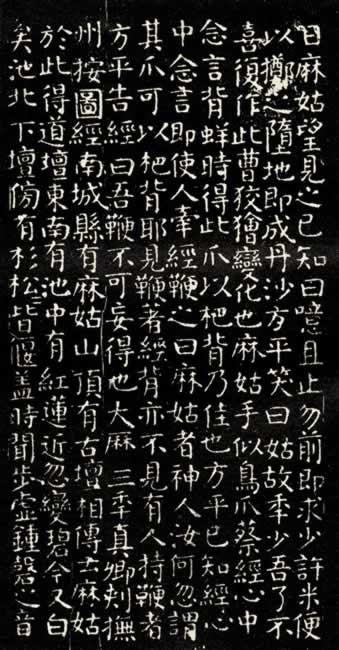 曰麻姑望見之已知曰噫且止勿前即求少許米便
以擲之墮地即成丹沙方平笑曰姑故秊少吾了不
喜復作此曹狡獪變化也麻姑手似鳥爪蔡經心中
念言背蛘時得此爪以杷背乃佳也方平已知經心
中念言即使人牽經鞭之曰麻姑者神人汝何忽謂
其爪可以杷背耶見鞭著經背亦不見有人持鞭者
方平告經曰吾鞭不可妄得也大厤三秊真卿刺撫
州按圖經南城縣有麻姑山頂有古壇相傳云麻姑
於此得道壇東南有池中有紅蓮近忽變碧今又白
矣池北下壇傍有杉松〻皆偃蓋時聞步虛鍾磬之音